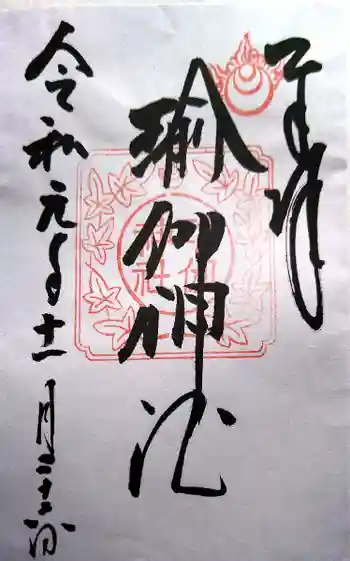 奉拝
瑜伽神社
令和元年十一月二十六日